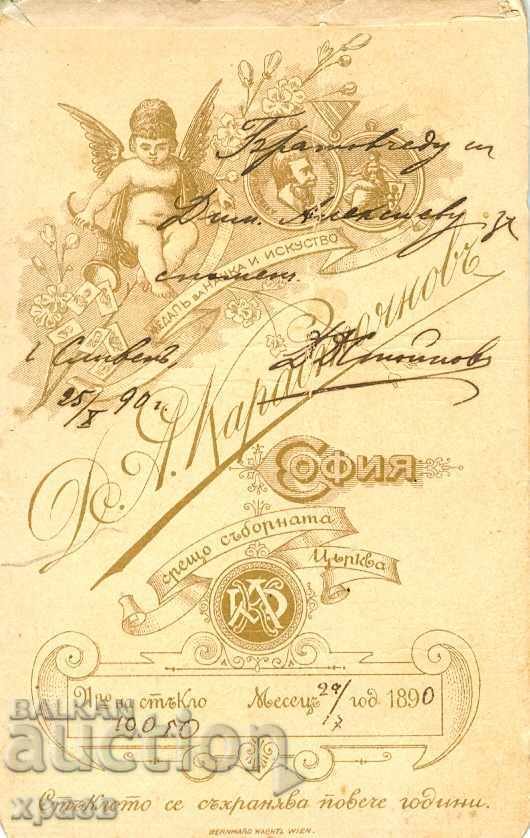 Братовчеду си
Дим. Алексиеву за
спомен.
МЕДАЛЪ ЗА НАУКА И ИСКУСТВО
г. Сливенъ,
25/X 90 г.
Д. А. Карастояновъ
СОФИЯ
срещо съборната
Църква
№ на стъкло Месецъ 29/17 год 1890
19050
Стъклото се съхранява повече години.
BERNHARD WACHTL WIEN.
BALKAN
auction
храбъ